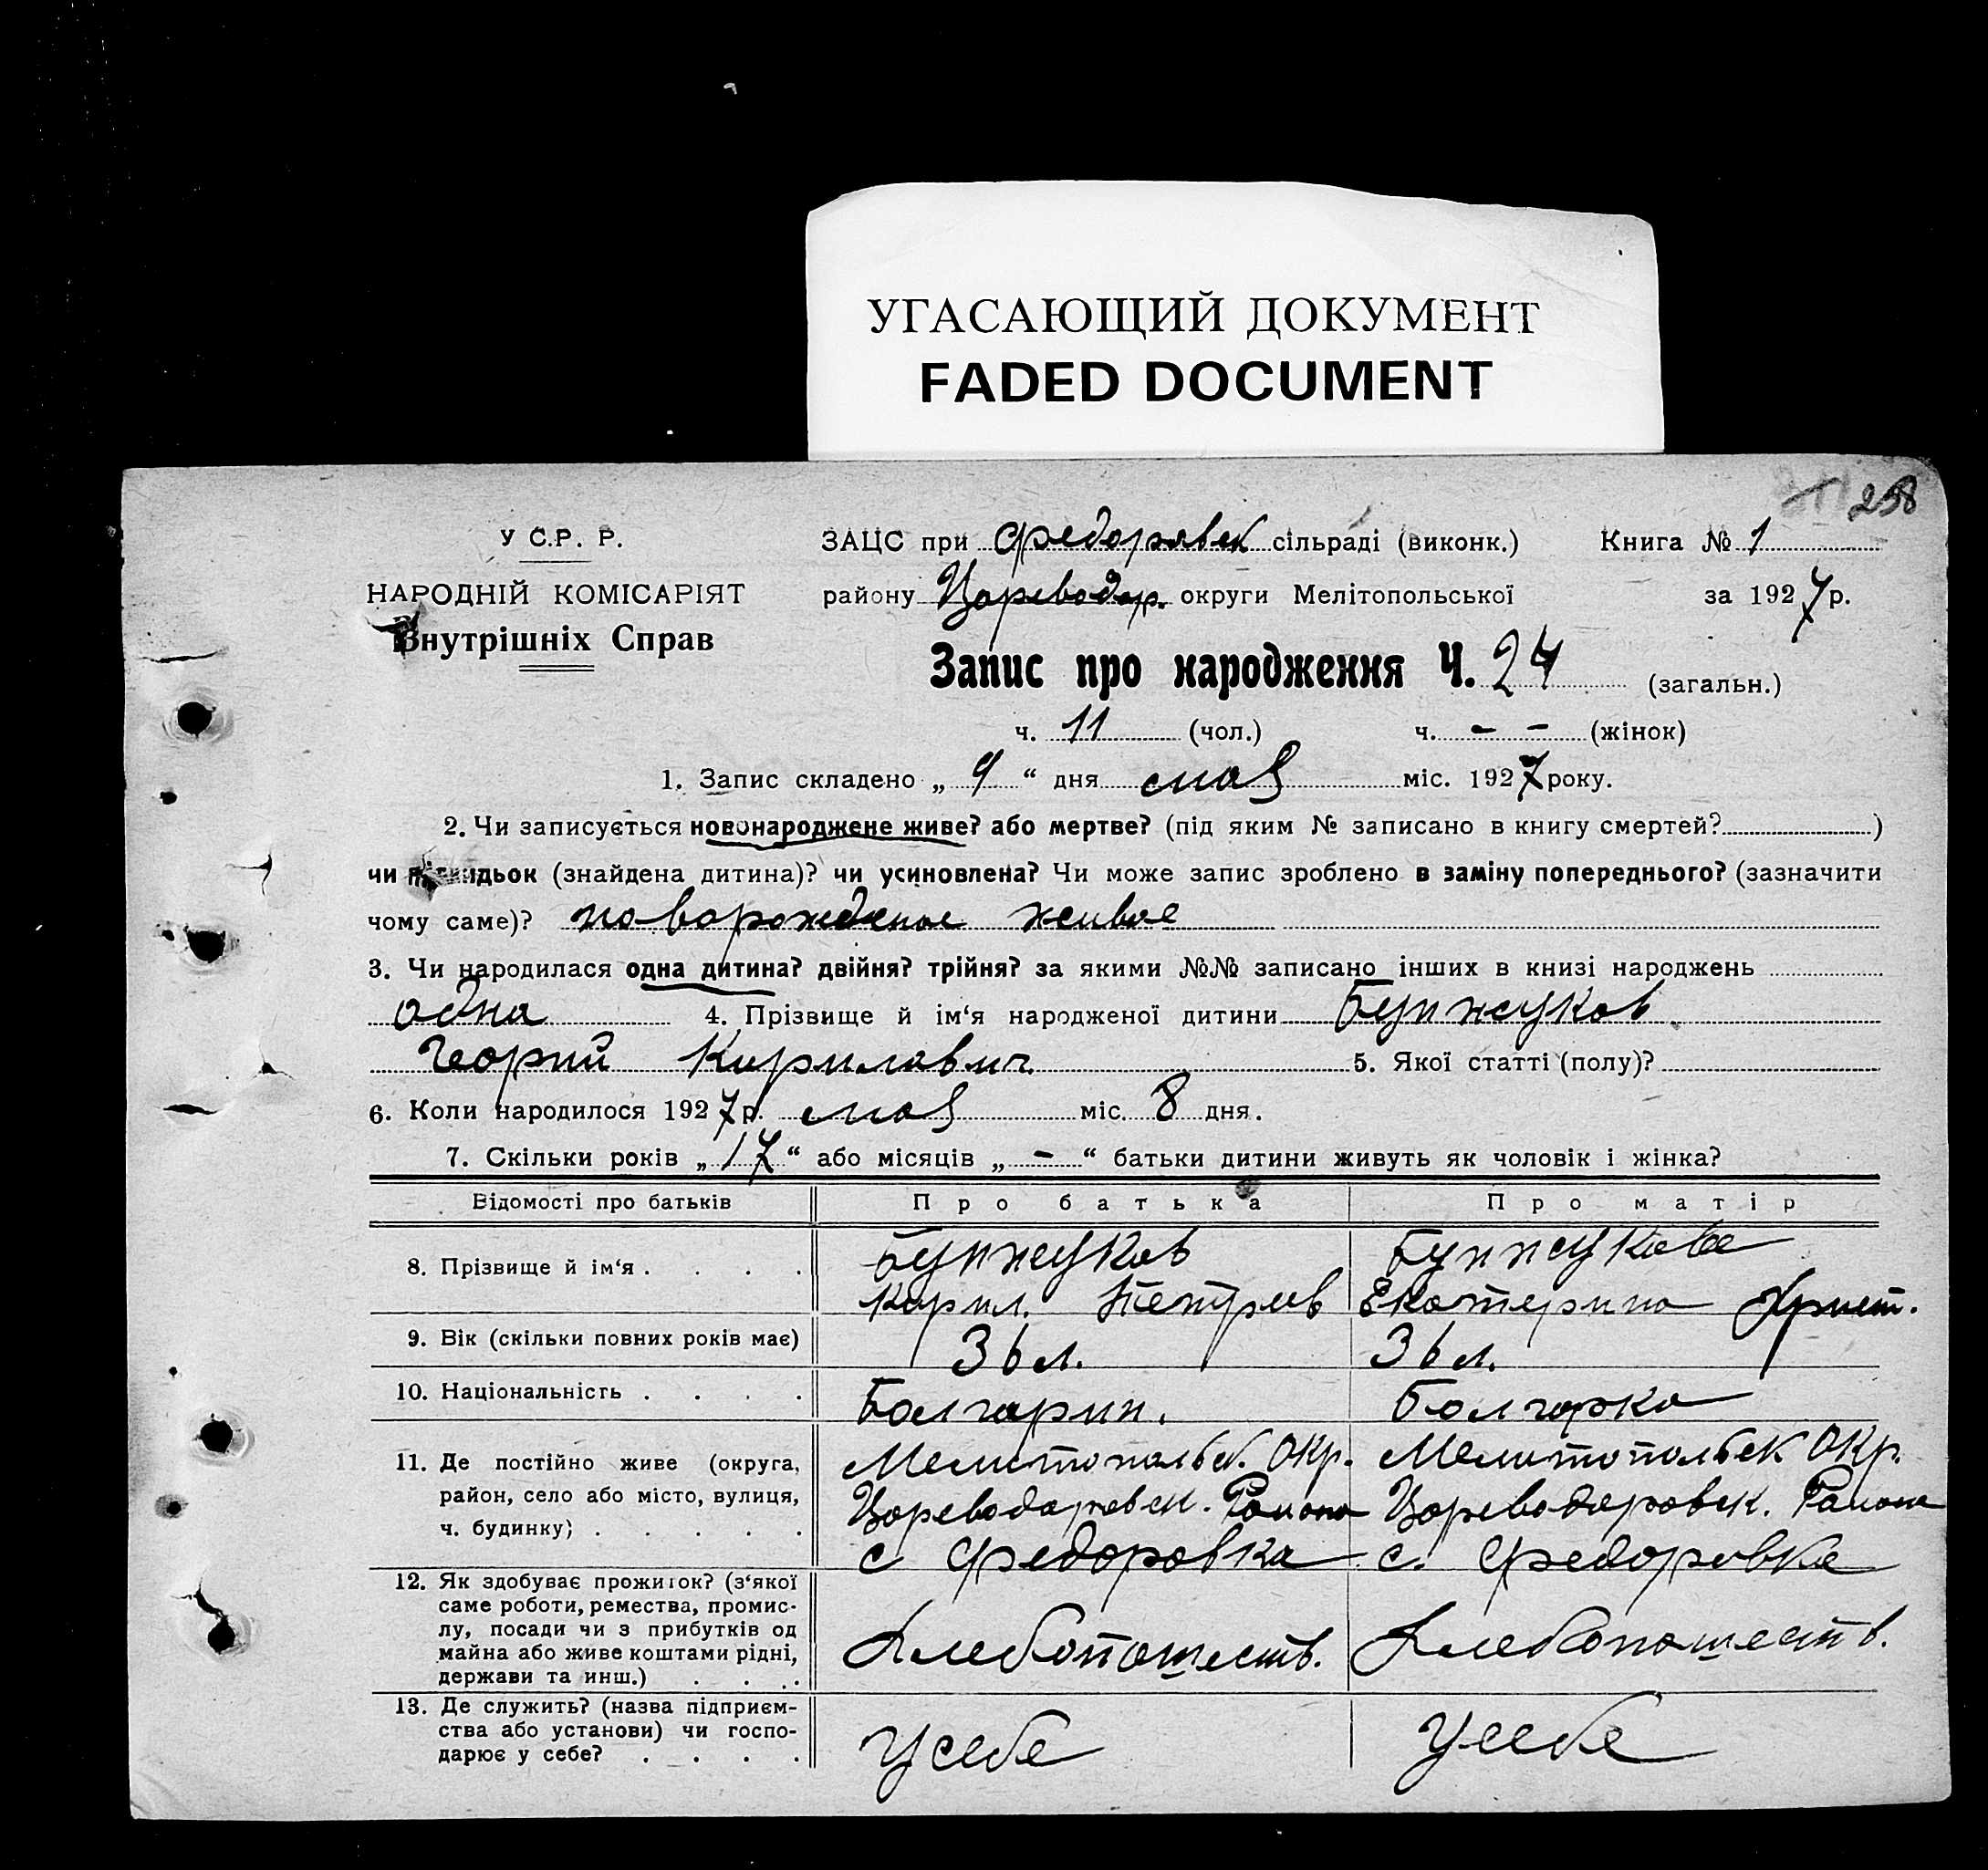 УГАСАЮЩИЙ ДОКУМЕНТ
FADED DOCUMENT
258
У С.Р. Р.
НАРОДНІЙ КОМІСАРІЯТ
Внутрішніх Справ
ЗАЦС при Федоровск сільраді (виконк.) Книга № 1
району Цареводар. округи Мелітопольської за 1927 р.
Запис про народження Ч. 24 (загальн.)
ч. 11 (чол.) ч. - - (жінок)
1. Запис складено „ 9 “ дня мая міс. 1927 року.
2. Чи записується новонароджене живе? або мертве? (під яким № записано в книгу смертей? )
чи підкидьок (знайдена дитина)? чи усиновлена? Чи може запис зроблено в заміну попереднього? (зазначити
чому саме)? новорожденое живое
3. Чи народилася одна дитина? двійня? трійня? за якими №№ записано інших в книзі народжень
одна 4. Прізвище й ім‘я народженої дитини Бунжуков
Георгий Кирилович 5. Якої статті (полу)?
6. Коли народилося 1927 р. мая міс. 8 дня.
7. Скільки років „ 17 “ або місяців „ - “ батьки дитини живуть як чоловік і жінка?
Відомості про батьків Про батька Про матір
8. Прізвище й ім‘я . . . . Бунжуков Бунжукова
Кирил. Петров Екатерина Христ.
9. Вік (скільки повних років має) 36 л. 36 л.
10. Національність . . . . Болгарин. Болгарка
11. Де постійно живе (округа, район, село або місто, вулиця, ч. будинку) . . . . . Мелитопольск. Окр. Мелитопольск Окр.
Цареводаровск. Района Цареводаровск. Района
с Федоровка с. Федоровка
12. Як здобуває прожиток? (з‘якої
саме роботи, ремества, промис-
лу, посади чи з прибутків од
майна або живе коштами рідні,
держави та инш.) . . . Хлебопашеств. Хлебопашеств.
13. Де служить? (назва підприєм-
ства або установи) чи госпо-
дарює у себе? . . . . У себе У себе